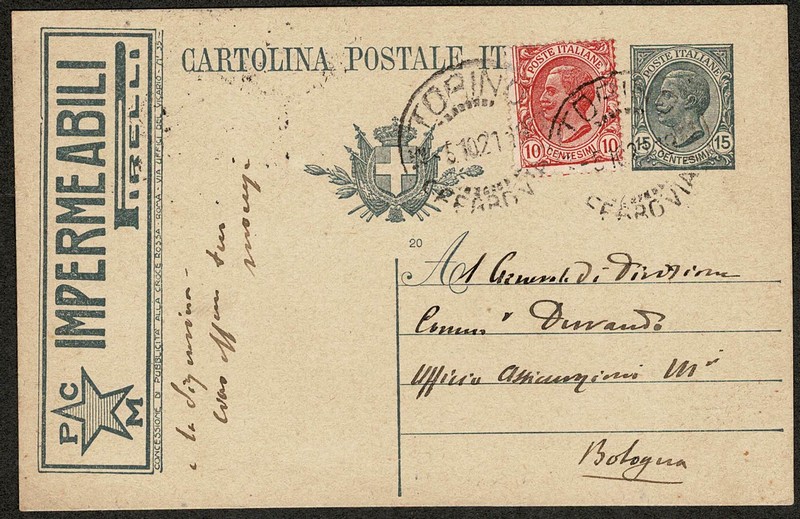 IMPERMEABILI
PIRELLI
P A C M
CONCESSIONE DI PUBBLICITÀ ALLA CROCE ROSSA - ROMA - VIA UFFICI DEL VICARIO - N° 35
CARTOLINA POSTALE IT
POSTE ITALIANE
10 CENTESIMI 10
POSTE ITALIANE
15 CENTESIMI 15
TORINO
5.10.21
FERROVIA
TORI
FERROVIA
20
Al Generale di Divisione
Comm.r Durando
Ufficio Assicurazioni
Bologna
e la Signorina